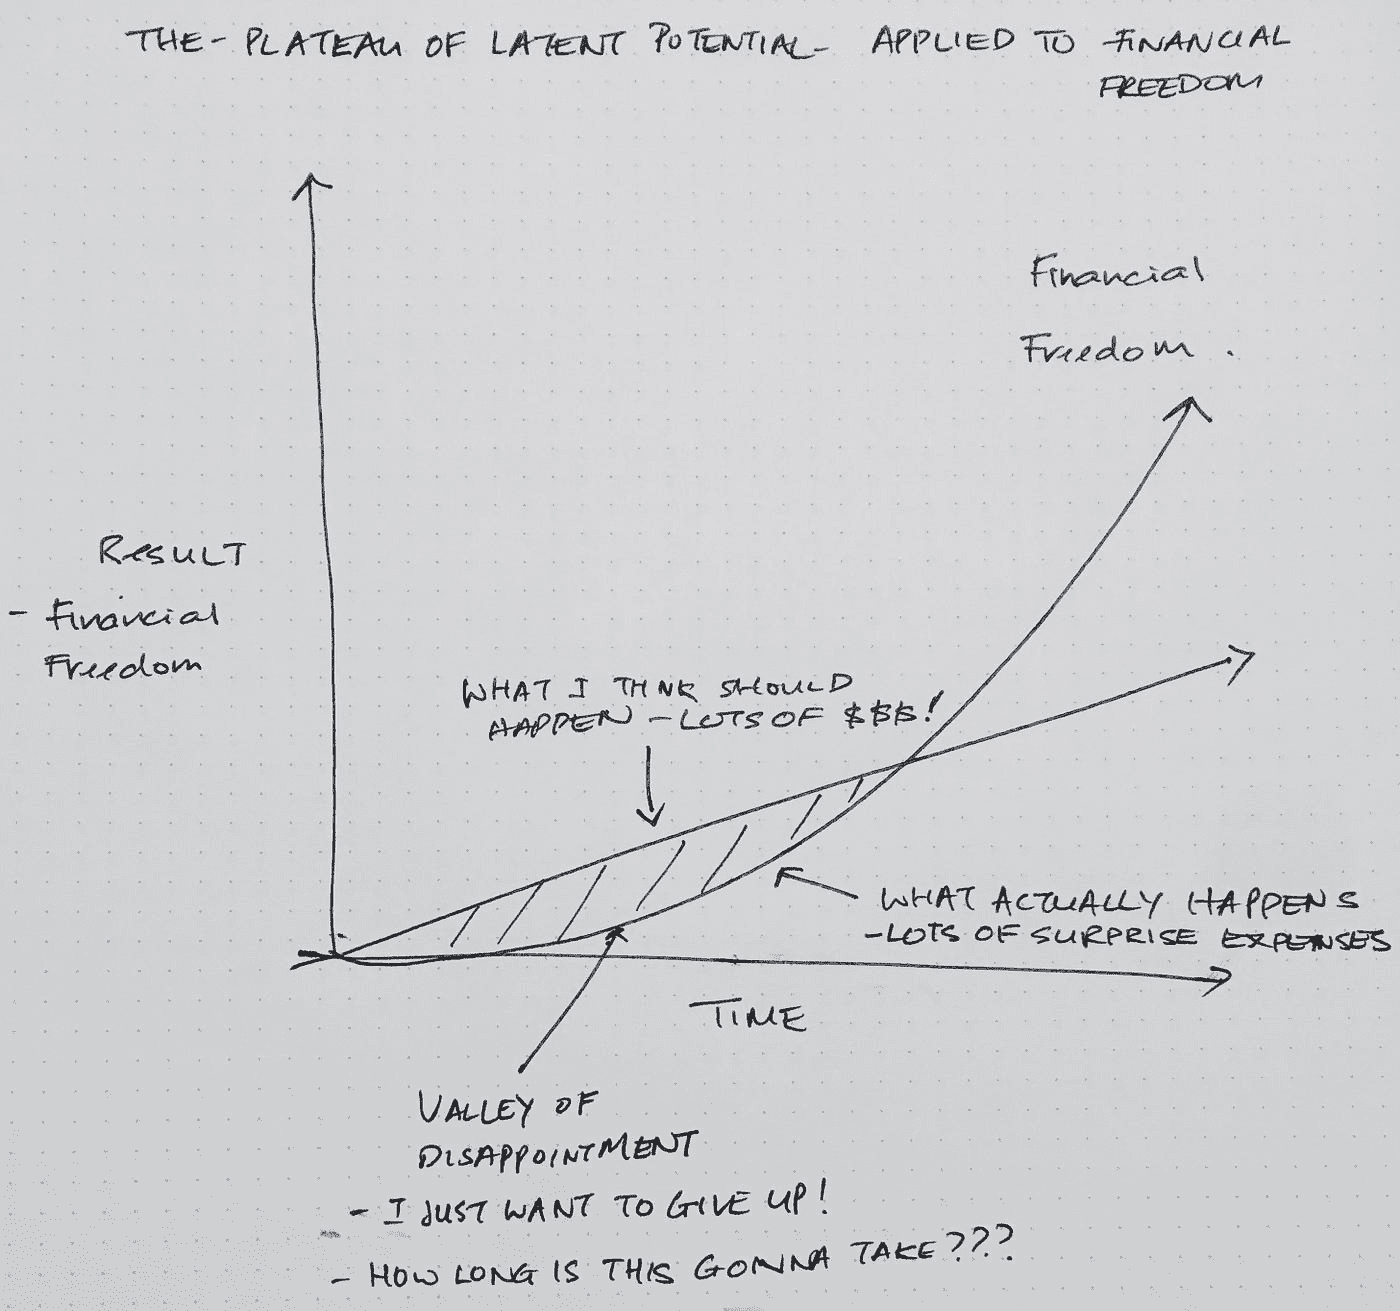 THE - PLATEAU OF LATENT POTENTIAL - APPLIED TO FINANCIAL
FREEDOM
Financial
Freedom.
RESULT
- Financial
Freedom
WHAT I THINK SHOULD
HAPPEN - LOTS OF $$$!
WHAT ACTUALLY HAPPENS
- LOTS OF SURPRISE EXPENSES
TIME
VALLEY OF
DISAPPOINTMENT
- I JUST WANT TO GIVE UP!
- HOW LONG IS THIS GONNA TAKE???